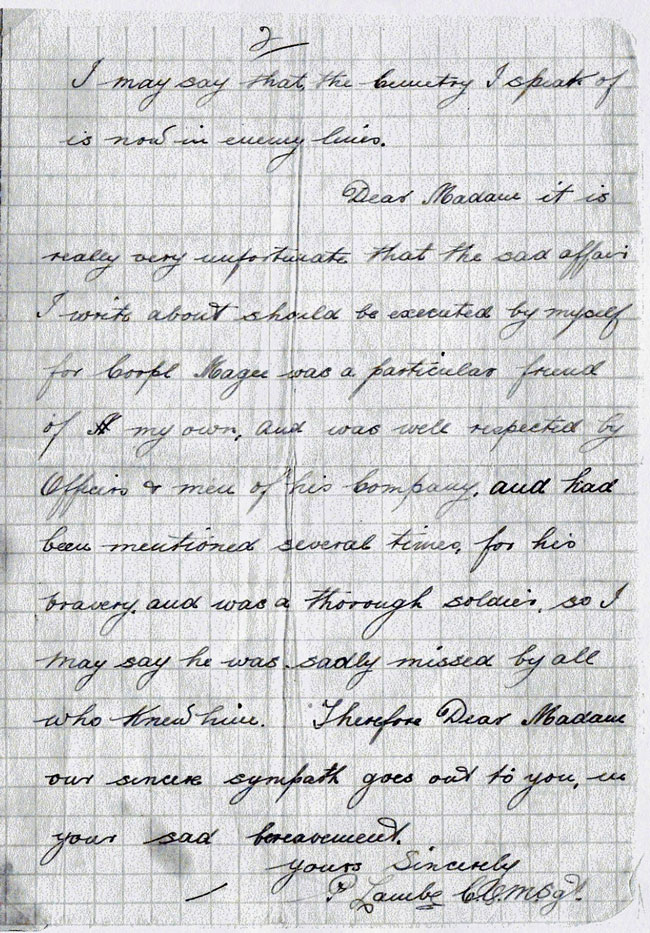 2
I may say that, the Cemetry I speak of
is now in enemy lines.
Dear Madam it is
really very unfortunate that the sad affair
I write about should be executed by myself
for Corpl Magee was a particular friend
of my own, and was well respected by
Officers & men of his Company, and had
been mentioned several times, for his
bravery, and was a thorough soldier, so I
may say he was sadly missed by all
who knew him. Therefore Dear Madam
our sincere sympath goes out to you, in
your sad bereavement.
Yours Sincerely
P Lambe